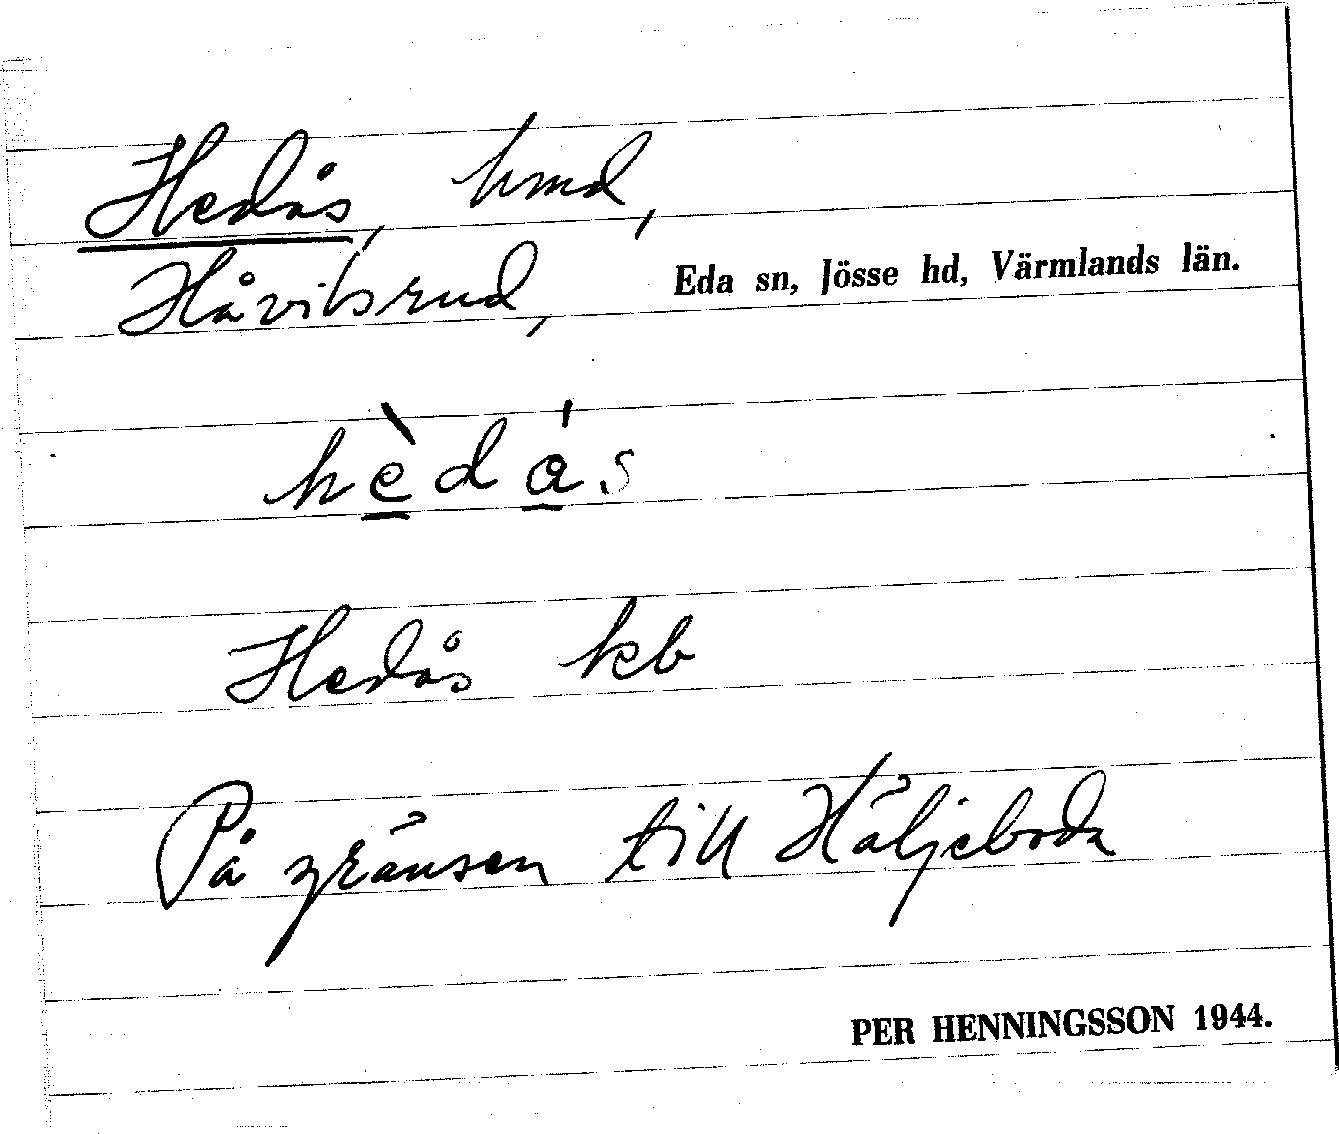 Hedås, hmd,
Håvilsrud, Eda sn, Jösse hd, Värmlands län.
hèdás
Hedås kb
På gränsen till Häljeboda
PER HENNINGSSON 1944.